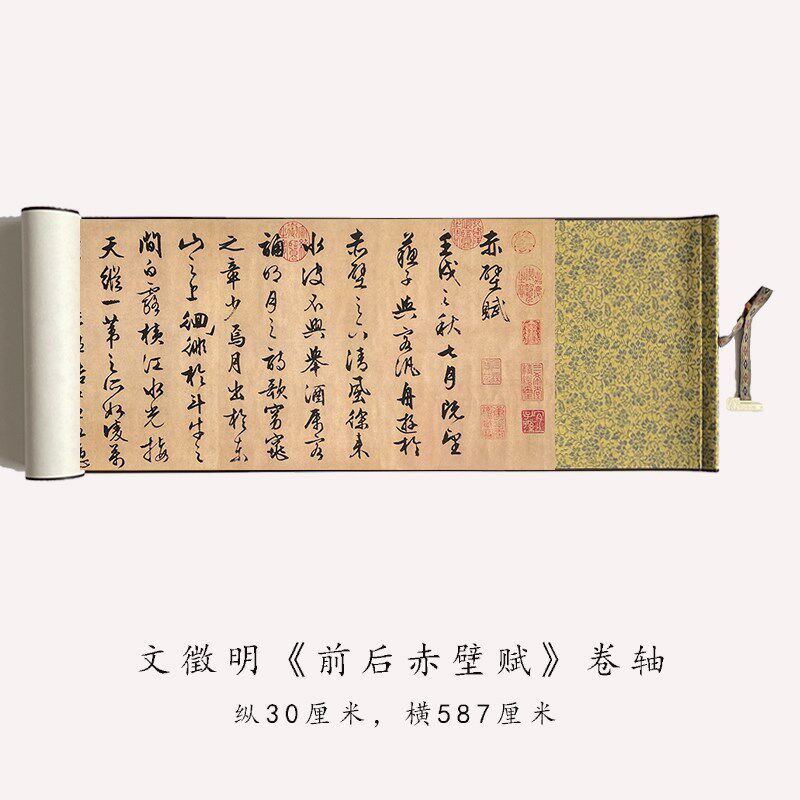 赤壁賦
壬戌之秋七月既望
蘇子與客汎舟遊於
赤壁之下清風徐来
水波不興舉酒属客
誦明月之詩歌窈窕
之章少焉月出於東
山之上徊徘於斗牛之
間白露横江水光接
天縱一葦之所如凌萬
文徵明《前后赤壁赋》卷轴
纵30厘米，横587厘米